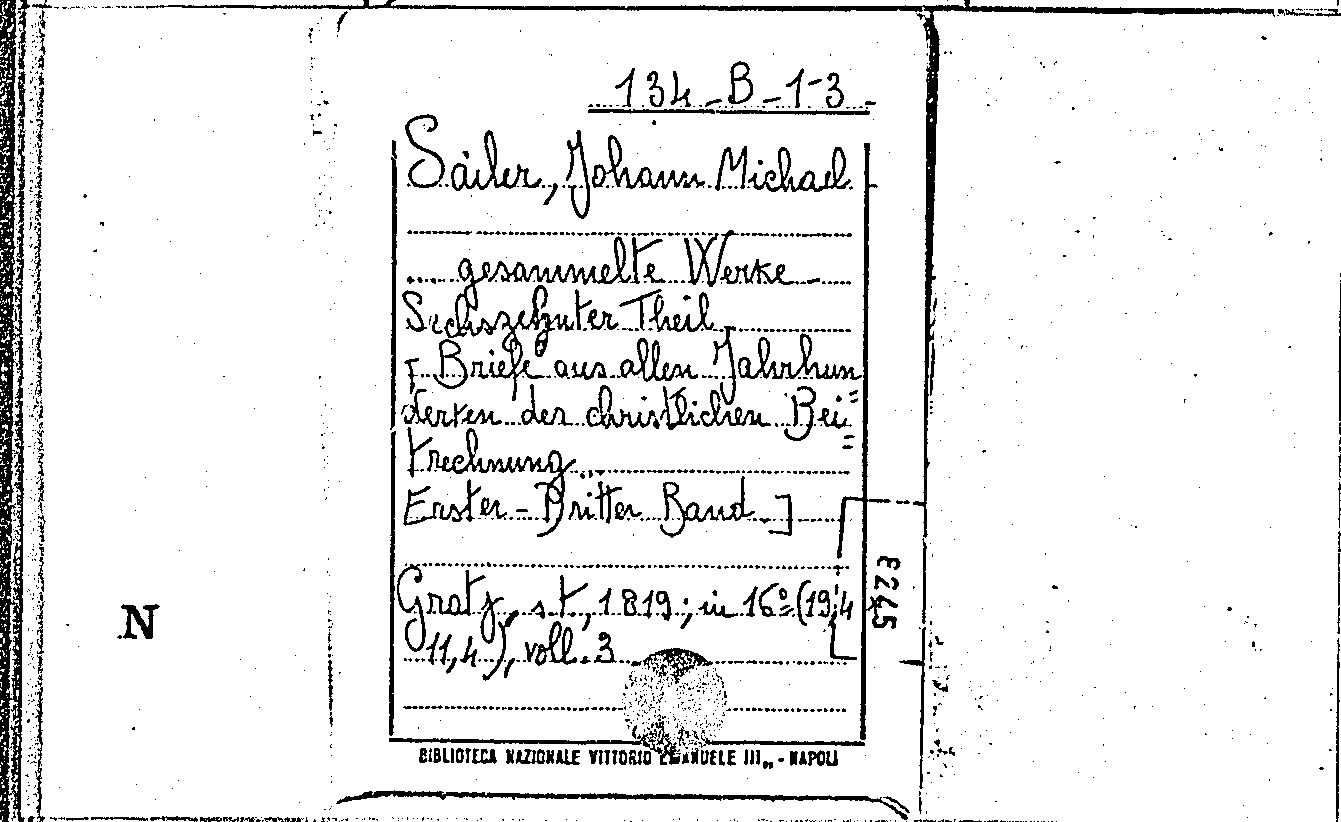 134-B-1-3
Sailer, Johann Michael.
.... gesammelte Werke
Sechszehnter Theil
[ Briefe aus allen Jahrhun=
derten der christlichen Bei=
trechnung...
Erster-Dritter Band ]
Gratz, s.t., 1819; in 16º (19,4
11,4), voll. 3
BIBLIOTECA NAZIONALE VITTORIO EMANUELE III„ - NAPOLI
N